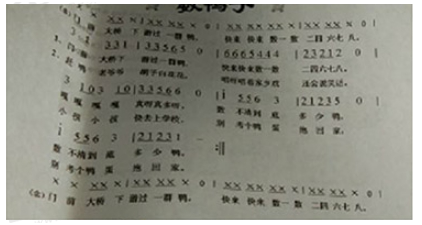 数鸭子
(念)门前 大桥 下 游过 一群 鸭, 快来 快来 数一 数 二四 六七 八。
3 3 1 | 3 3 5 6 5 0 | 6 6 6 5 4 4 4 | 2 3 2 1 2 0 |
1. 大桥下 游过一群鸭, 快来快来数一数 二四六七八。
2. 老爷爷 胡子白花花, 唱呀唱着家乡戏 还会说笑话。
3 1 0 3 1 0 | 3 3 5 6 6 0 | i 5 5 6 3 | 2 1 2 3 5 0 |
嘎嘎嘎嘎 真呀真多呀, 数不清到底 多少鸭,
小孩小孩 快去上学校, 别考个鸭蛋 抱回家。
i 5 5 6 3 | 2 1 2 3 1 - :||
数不清到底 多少鸭。
别考个鸭蛋 抱回家。
X X X X X X X X X X 0 | X X X X X X X | X X X X X 0 |
(念)门 前 大桥 下 游过 一群 鸭, 快来 快来 数一 数 二四 六七 八。